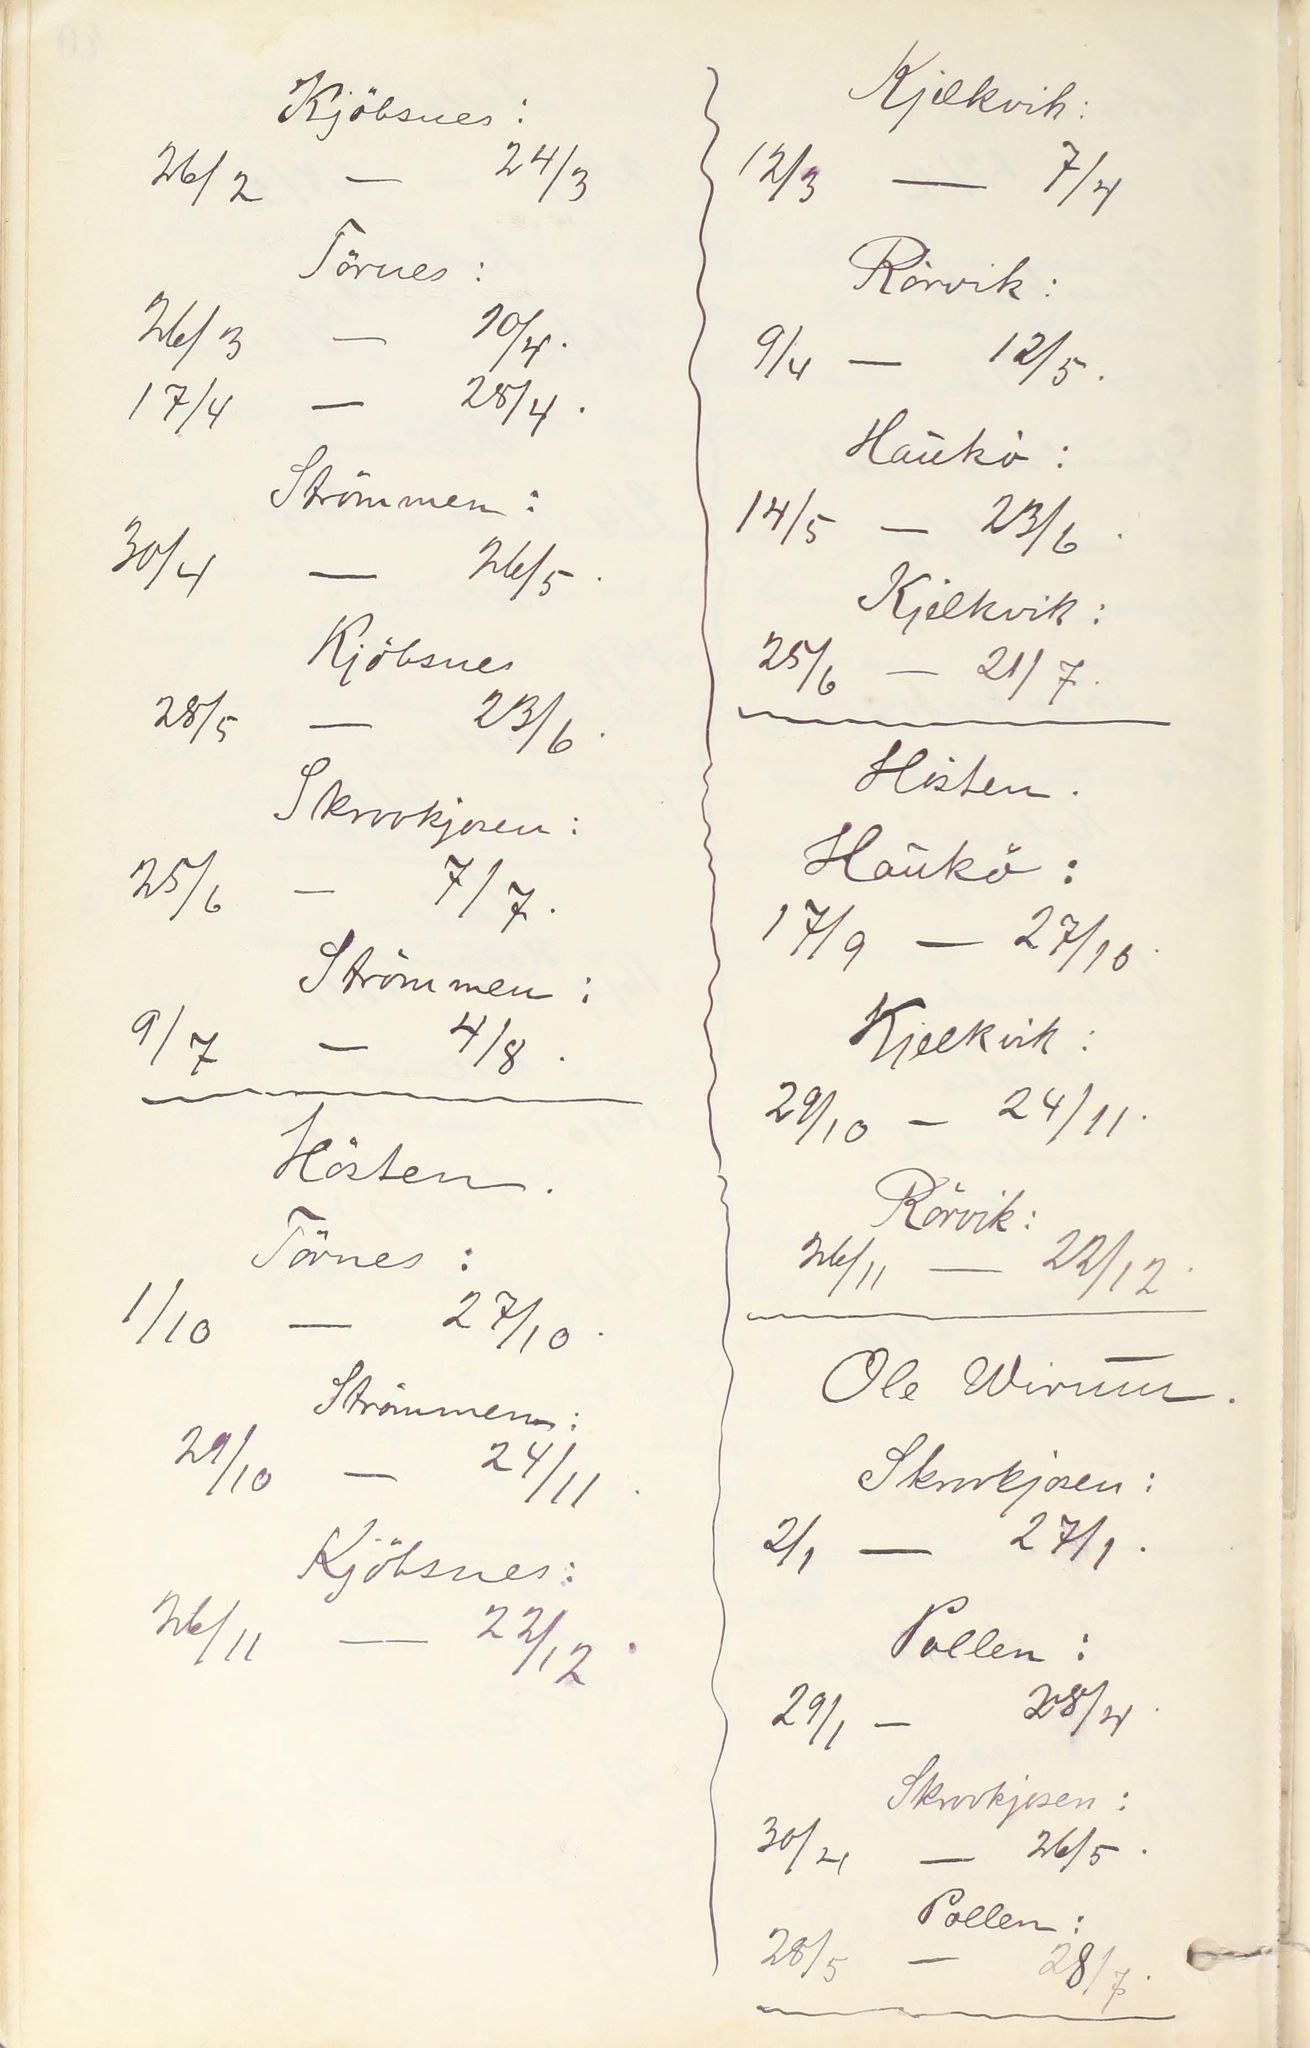 Kjöbsnes:
26/2 — 24/3
Törnes:
26/3 — 10/4.
17/4 — 28/4.
Strömmen:
30/4 — 26/5.
Kjöbsnes
28/5 — 23/6.
Skrovkjosen:
25/6 — 7/7.
Strömmen:
9/7 — 4/8.
Hösten.
Törnes:
1/10 — 27/10.
Strömmen:
29/10 — 24/11.
Kjöbsnes:
26/11 — 22/12.
Kjelkvik:
12/3 — 7/4
Rörvik:
9/4 — 12/5.
Haukö:
14/5 — 23/6.
Kjelkvik:
25/6 — 21/7.
Hösten.
Haukö:
17/9 — 27/10.
Kjelkvik:
29/10 — 24/11.
Rörvik:
26/11 — 22/12.
Ole Wirum.
Skrovkjosen:
2/1 — 27/1.
Pollen:
29/1 — 28/4.
Skrovkjosen:
30/4 — 26/5.
Pollen:
28/5 — 28/7.